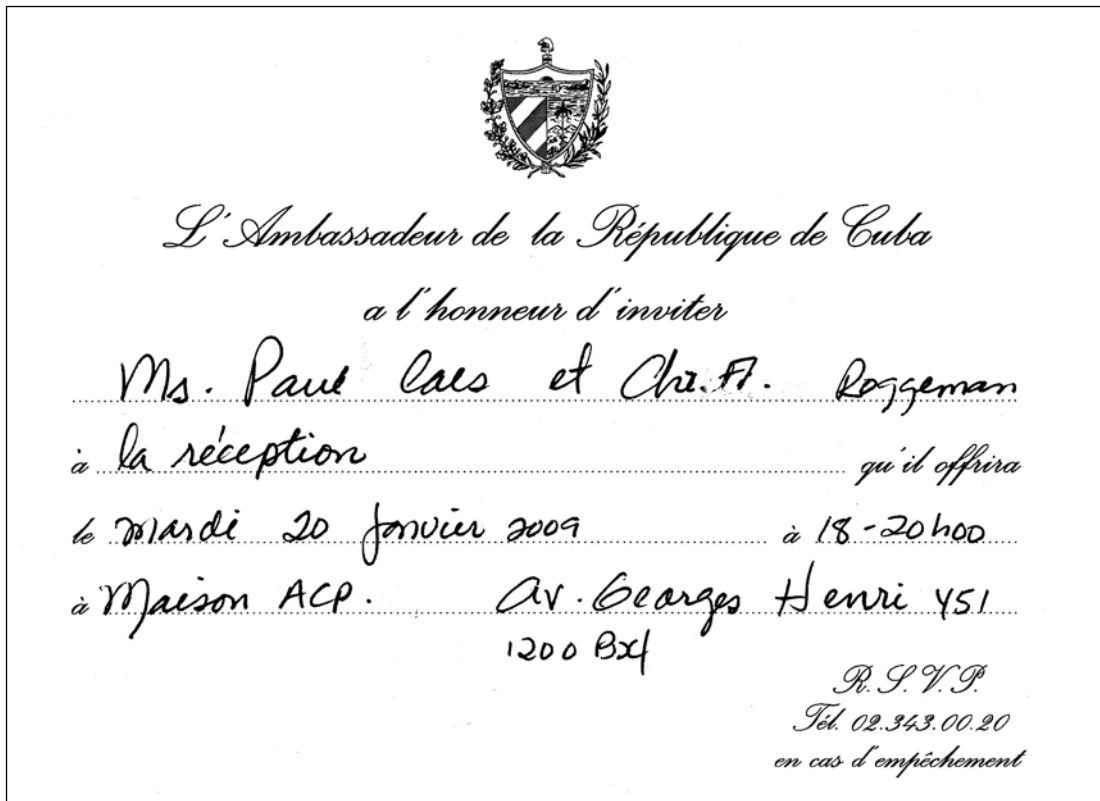 L'Ambassadeur de la République de Cuba
a l'honneur d'inviter
Ms. Paul Caes et Chr. A. Roggeman
à la réception qu'il offrira
le mardi 20 janvier 2009 à 18-20h00
à Maison ACP. Av. Georges Henri 451
1200 Bxl
R.S.V.P.
Tél. 02.343.00.20
en cas d'empêchement